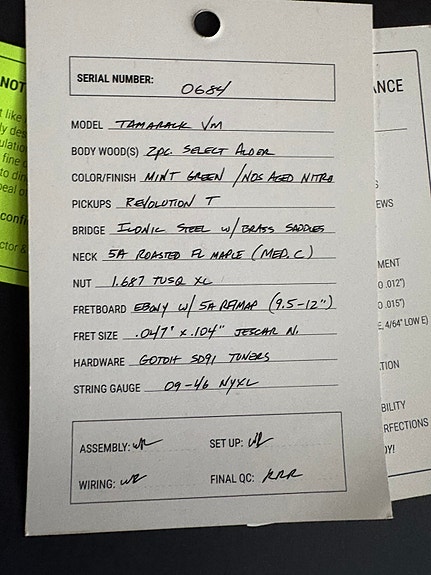 SERIAL NUMBER: 0684
MODEL TAMARACK VM
BODY WOOD(S) 2PC. SELECT ALDER
COLOR/FINISH MINT GREEN / NOS AGED NITRO
PICKUPS REVOLUTION T
BRIDGE ICONIC STEEL W/ BRASS SADDLES
NECK 5A ROASTED FL MAPLE (MED. C)
NUT 1.687 TUSQ XL
FRETBOARD EBONY W/ 5A RFMAP (9.5-12")
FRET SIZE .047" x .104" JESCAR N.
HARDWARE GOTOH SD91 TUNERS
STRING GAUGE 09-46 NYXL
ASSEMBLY: WR SET UP: WR
WIRING: WR FINAL QC: KRR
NOT
ANCE
EWS
MENT
O .012")
O .015")
E, 4/64" LOW E)
TION
BILITY
RFECTIONS
OY!